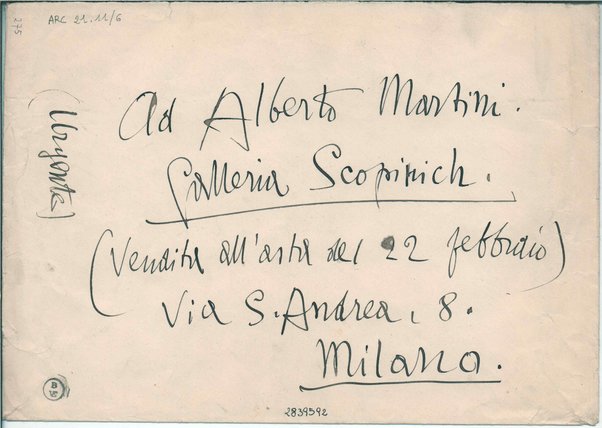 ARC 21.11/6
275
(Urgente)
Ad Alberto Martini.
Galleria Scopinich.
(Vendita all'asta del 22 febbraio)
Via S. Andrea, 8.
Milano.
2839592